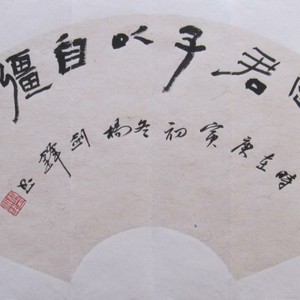 君子以自彊
時在庚寅初冬楊劍鋒书